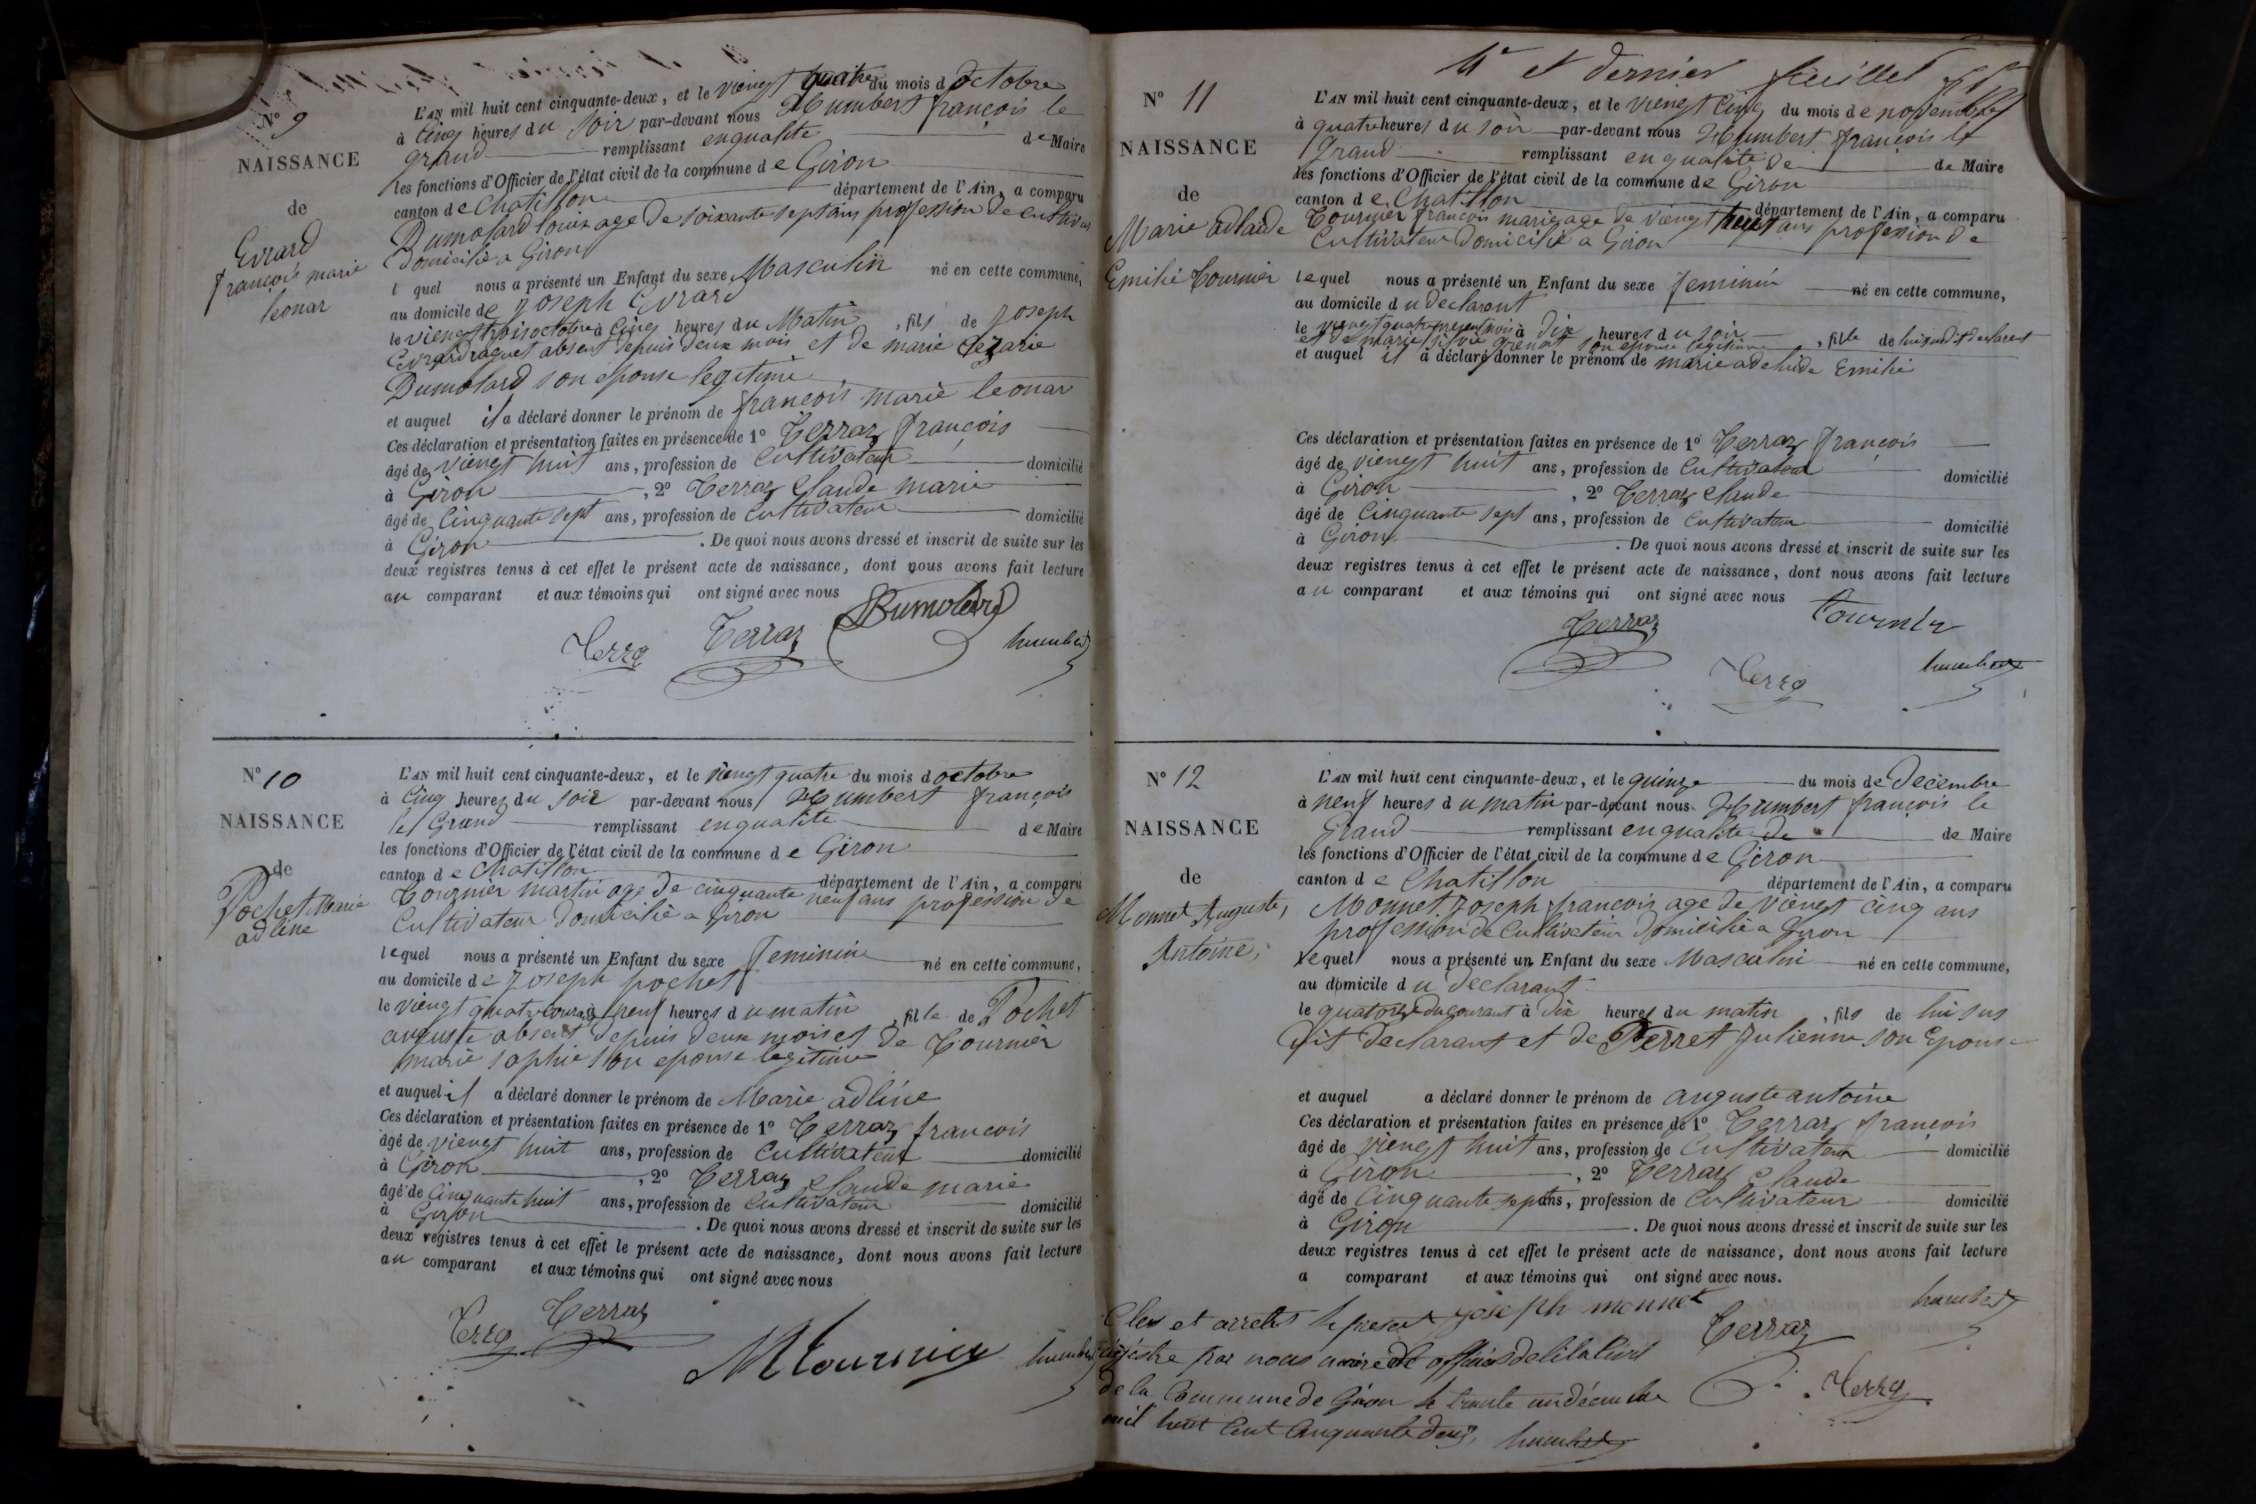 N° 9
NAISSANCE
de
Evrard
françois marie
leonar
L'AN mil huit cent cinquante-deux, et le viengt quatre du mois d octobre
à cinq heures du soir par-devant nous Humbert françois le
grand remplissant enqualite de Maire
les fonctions d'Officier de l'état civil de la commune de Giron
canton de Chatillon département de l'Ain, a comparu
Dumolard louis age de soixante sept ans profession de cultivateur
domicilié a Giron
l quel nous a présenté un Enfant du sexe Masculin né en cette commune,
au domicile de joseph Evrard
le viengt trois octobre à cinq heures du Matin, fils de joseph
Evrard absent depuis deux mois et de marie
Dumolard son epouse legitime
et auquel il a déclaré donner le prénom de françois marie leonar
Ces déclaration et présentation faites en présence de 1° Terraz françois
âgé de viengt huit ans, profession de cultivateur domicilié
à Giron, 2° Terraz Claude marie
âgé de cinquante sept ans, profession de cultivateur domicilié
à Giron. De quoi nous avons dressé et inscrit de suite sur les
deux registres tenus à cet effet le présent acte de naissance, dont nous avons fait lecture
au comparant et aux témoins qui ont signé avec nous
Dumolard
Terra Terraz humbert
N° 10
NAISSANCE
de
Pochet Marie
adline
L'AN mil huit cent cinquante-deux, et le viengt quatre du mois d octobre
à cinq heures du soir par-devant nous Humbert françois
le Grand remplissant enqualite de Maire
les fonctions d'Officier de l'état civil de la commune de Giron
canton de Chatillon département de l'Ain, a comparu
Tournier martin age de cinquante neuf ans profession de
cultivateur domicilié a Giron
lequel nous a présenté un Enfant du sexe feminine né en cette commune,
au domicile de joseph pochet
le viengt quatre courant à neuf heures du matin, fille de Pochet
auguste absent depuis deux mois et de Tournier
marie sophie son epouse legitime
et auquel il a déclaré donner le prénom de Marie adline
Ces déclaration et présentation faites en présence de 1° Terraz françois
âgé de viengt huit ans, profession de cultivateur domicilié
à Giron, 2° Terraz Claude marie
âgé de cinquante huit ans, profession de cultivateur domicilié
à Giron. De quoi nous avons dressé et inscrit de suite sur les
deux registres tenus à cet effet le présent acte de naissance, dont nous avons fait lecture
au comparant et aux témoins qui ont signé avec nous
Terra Terraz
MTournier humbert
4e et dernier feuillet
N° 11
NAISSANCE
de
Marie adlaide
Emilie Tournier
L'AN mil huit cent cinquante-deux, et le viengt cinq du mois de novembre
à quatre heures du soir par-devant nous Humbert françois le
grand remplissant en qualité de de Maire
les fonctions d'Officier de l'état civil de la commune de Giron
canton de Chatillon département de l'Ain, a comparu
Tournier françois marie age de viengt huit ans profession de
cultivateur domicilié a Giron
lequel nous a présenté un Enfant du sexe feminin né en cette commune,
au domicile du declarant
le viengt quatre present mois à dix heures du soir, fille de lui susdit declarant
et de marie silvie grenat son epouse legitime
et auquel il a déclaré donner le prénom de marie adelaide Emilie
Ces déclaration et présentation faites en présence de 1° Terraz françois
âgé de viengt huit ans, profession de cultivateur domicilié
à Giron, 2° Terraz Claude
âgé de cinquante sept ans, profession de cultivateur domicilié
à Giron. De quoi nous avons dressé et inscrit de suite sur les
deux registres tenus à cet effet le présent acte de naissance, dont nous avons fait lecture
au comparant et aux témoins qui ont signé avec nous
Terraz Tournier
Terra humbert
N° 12
NAISSANCE
de
Monnet Auguste,
Antoine,
L'AN mil huit cent cinquante-deux, et le quinze du mois de Decembre
à neuf heures du matin par-devant nous Humbert françois le
Grand remplissant en qualite de de Maire
les fonctions d'Officier de l'état civil de la commune de Giron
canton de Chatillon département de l'Ain, a comparu
Monnet joseph françois age de viengt cinq ans
profession de cultivateur domicilié a Giron
lequel nous a présenté un Enfant du sexe Masculin né en cette commune,
au domicile du declarant
le quatorze du courant à dix heures du matin, fils de lui sus
dit declarant et de Perret julienne son Epouse
et auquel a déclaré donner le prénom de auguste antoine
Ces déclaration et présentation faites en présence de 1° Terraz françois
âgé de viengt huit ans, profession de cultivateur domicilié
à Giron, 2° Terraz Claude
âgé de cinquante sept ans, profession de cultivateur domicilié
à Giron. De quoi nous avons dressé et inscrit de suite sur les
deux registres tenus à cet effet le présent acte de naissance, dont nous avons fait lecture
a comparant et aux témoins qui ont signé avec nous.
joseph monnet humbert
Terraz
Terra
Clos et arreté le present
régistre par nous maire officier de l'etat civil
de la Commune de Giron le trente un décembre
mil huit cent cinquante deux, humbert